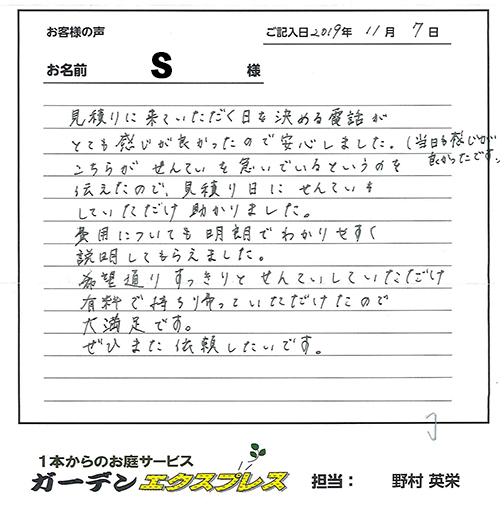 お客様の声
ご記入日2019年 11月 7日
お名前 S 様
見積りに来ていただく日を決める電話が
とても感じが良かったので安心しました。(当日も感じが
良かったです。)
こちらがせんていを急いでいるというのを
伝えたので、見積り日にせんていも
していただけ助かりました。
費用についても明朗でわかりやすく
説明してもらえました。
希望通りすっきりとせんていしていただけ
有料で持ち帰っていただけたので
大満足です。
ぜひまた依頼したいです。
1本からのお庭サービス
ガーデンエクスプレス 担当: 野村 英栄